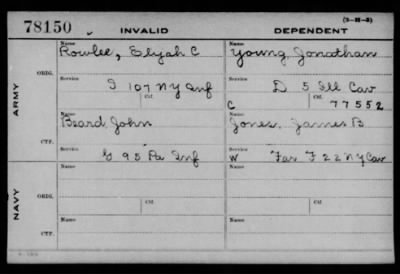 78150 INVALID DEPENDENT (3-25-5)
Name Name
Rowlee, Elijah C Young Jonathan
ORIG. Service Service
I 107 NY Inf D 5 Ill Cav
Ctf. Ctf.
C 77552
ARMY
Name Name
Beard, John Jones, James B
CTF. Service Service
G 95 Pa Inf W Far F 22 NY Cav
Name Name
ORIG.
Ctf. Ctf.
NAVY
Name Name
CTF.